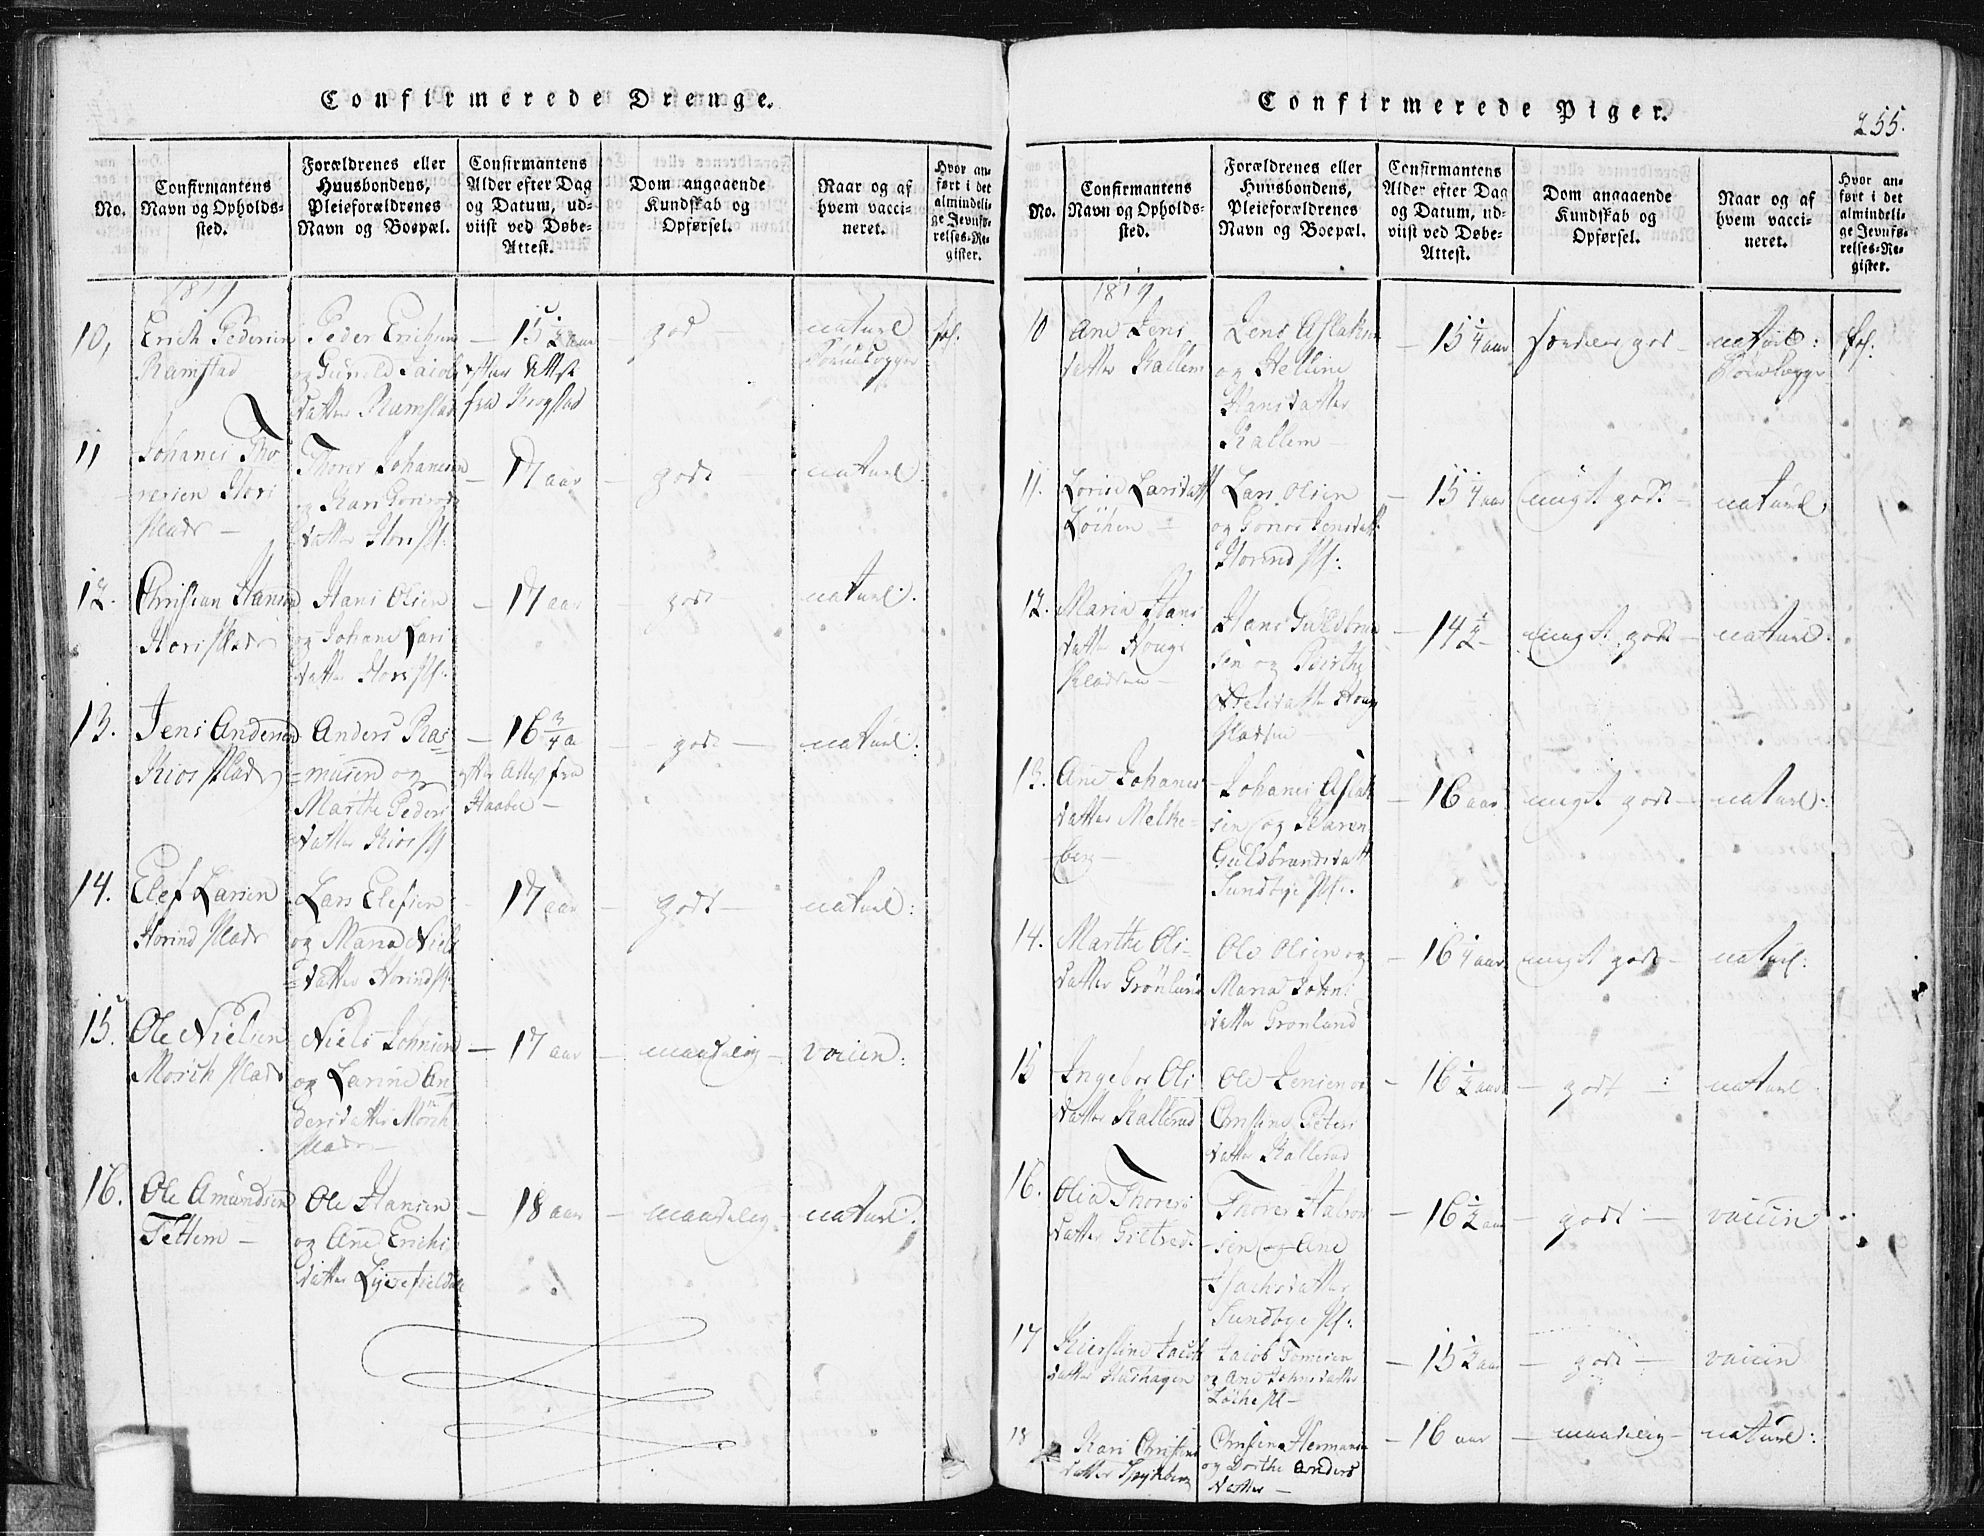 Confirmerede Drenge.
No.
Confirmantens
Navn og Opholds-
sted.
Forældrenes eller
Huusbondens,
Pleieforældrenes
Navn og Boepæl.
Confirmantens
Alder efter Dag
og Datum, ud-
viist ved Døbe-
Attest.
Dom angaaende
Kundskab og
Opførsel.
Naar og af
hvem vacci-
neret.
Hvor an-
ført i det
almindeli-
ge Jevnfø-
relses-Re-
gister.
1819
10,
Erich Pedersen
Ramstad
Peder Erichsen
og Gunild Jacobs
datter Ramstad
15 1/2 aar
efter Attst
fra Krogstad
god
naturl
11
Johanes Tho
resen Hori
plads
Thores Johanesen
og Kari
datter Horipl:
17 aar
godt
naturl.
12.
Christian Hansen
Hori plads
Hans Olsen
og Johane Lars
datter Horipl:
17 aar
godt
naturl.
13.
Jens Andersen
Kios plads
Anders Ras=
=musen og
Marthe Peders
datter Kios pl
16 3/4 a
efter Attest fra
Haabøe
godt
naturl:
14.
Elef Larsen
Horind plads
Lars Elefsen
og Maria Niels
=datter Horindpl:
17 aar
godt
naturl:
15.
Ole Nielsen
Morch plads
Niels Johnsen
og Larine An
dersdatter Morch
plads
17 aar
maadelig
vaccin:
16.
Ole Amundsen
Tettem
Ole Hansen
og Ane Erichs
datter
18 aar
maadelig
naturl.
Confirmerede Piger.
255.
No.
Confirmantens
Navn og Opholds-
sted.
Forældrenes eller
Huusbondens,
Pleieforældrenes
Navn og Boepæl.
Confirmantens
Alder efter Dag
og Datum, ud-
viist ved Døbe-
Attest.
Dom angaaende
Kundskab og
Opførsel.
Naar og af
hvem vacci-
neret.
Hvor an-
ført i det
almindeli-
ge Jevnfø-
relses-Re-
gister.
1819
10
Ane Jens
datter Kallem
Jens Aslaksen
og Helline
Hansdatter
Kallem
15 1/4 aar
særdeles god
naturl:
11.
Lorine Larsdatt
Løchen
Lars Olsen
og Jensdatt
Horind pl:
15 1/4 aar
meget godt
naturl,
12.
Maria Hans
datter Houg
pladsen
Hans Guldbran
sen og Birthe
Nielsdatter Houg
pladsen
14 1/2
meget godt
naturl.
13.
Ane Johanes
datter Melke-
berg
Johanes Aslak
sen og Karen
Guldbrandsdatt
Sundbye pl:
16 aar
meget godt
naturl.
14.
Marthe Ols-
datter Grønlund
Ole Olsen og
Maria Johns
datter Grønlund
16 1/4 aar
meget godt
naturl:
15
Ingebor Ols
datter Kallerud
Ole Jensen og
Christine Peters
datter Kallerud
16 1/2 aar
godt
naturl
16.
Olia Thores
datter
Thores Halvor
sen og Ane
Isachsdatter
Sundbye pl:
16 1/2 aar
godt
vaccin
17
Kierstine Jacob
datter Hushagen
Jacob Tomesen
og Ane Johnsdatter
Løche pl
15 1/2 aar
godt
vaccin
18
Kari Christens
datter
Christen Hermansen
og Dorthe Anders
datter
16 aar
maadelig
naturl: